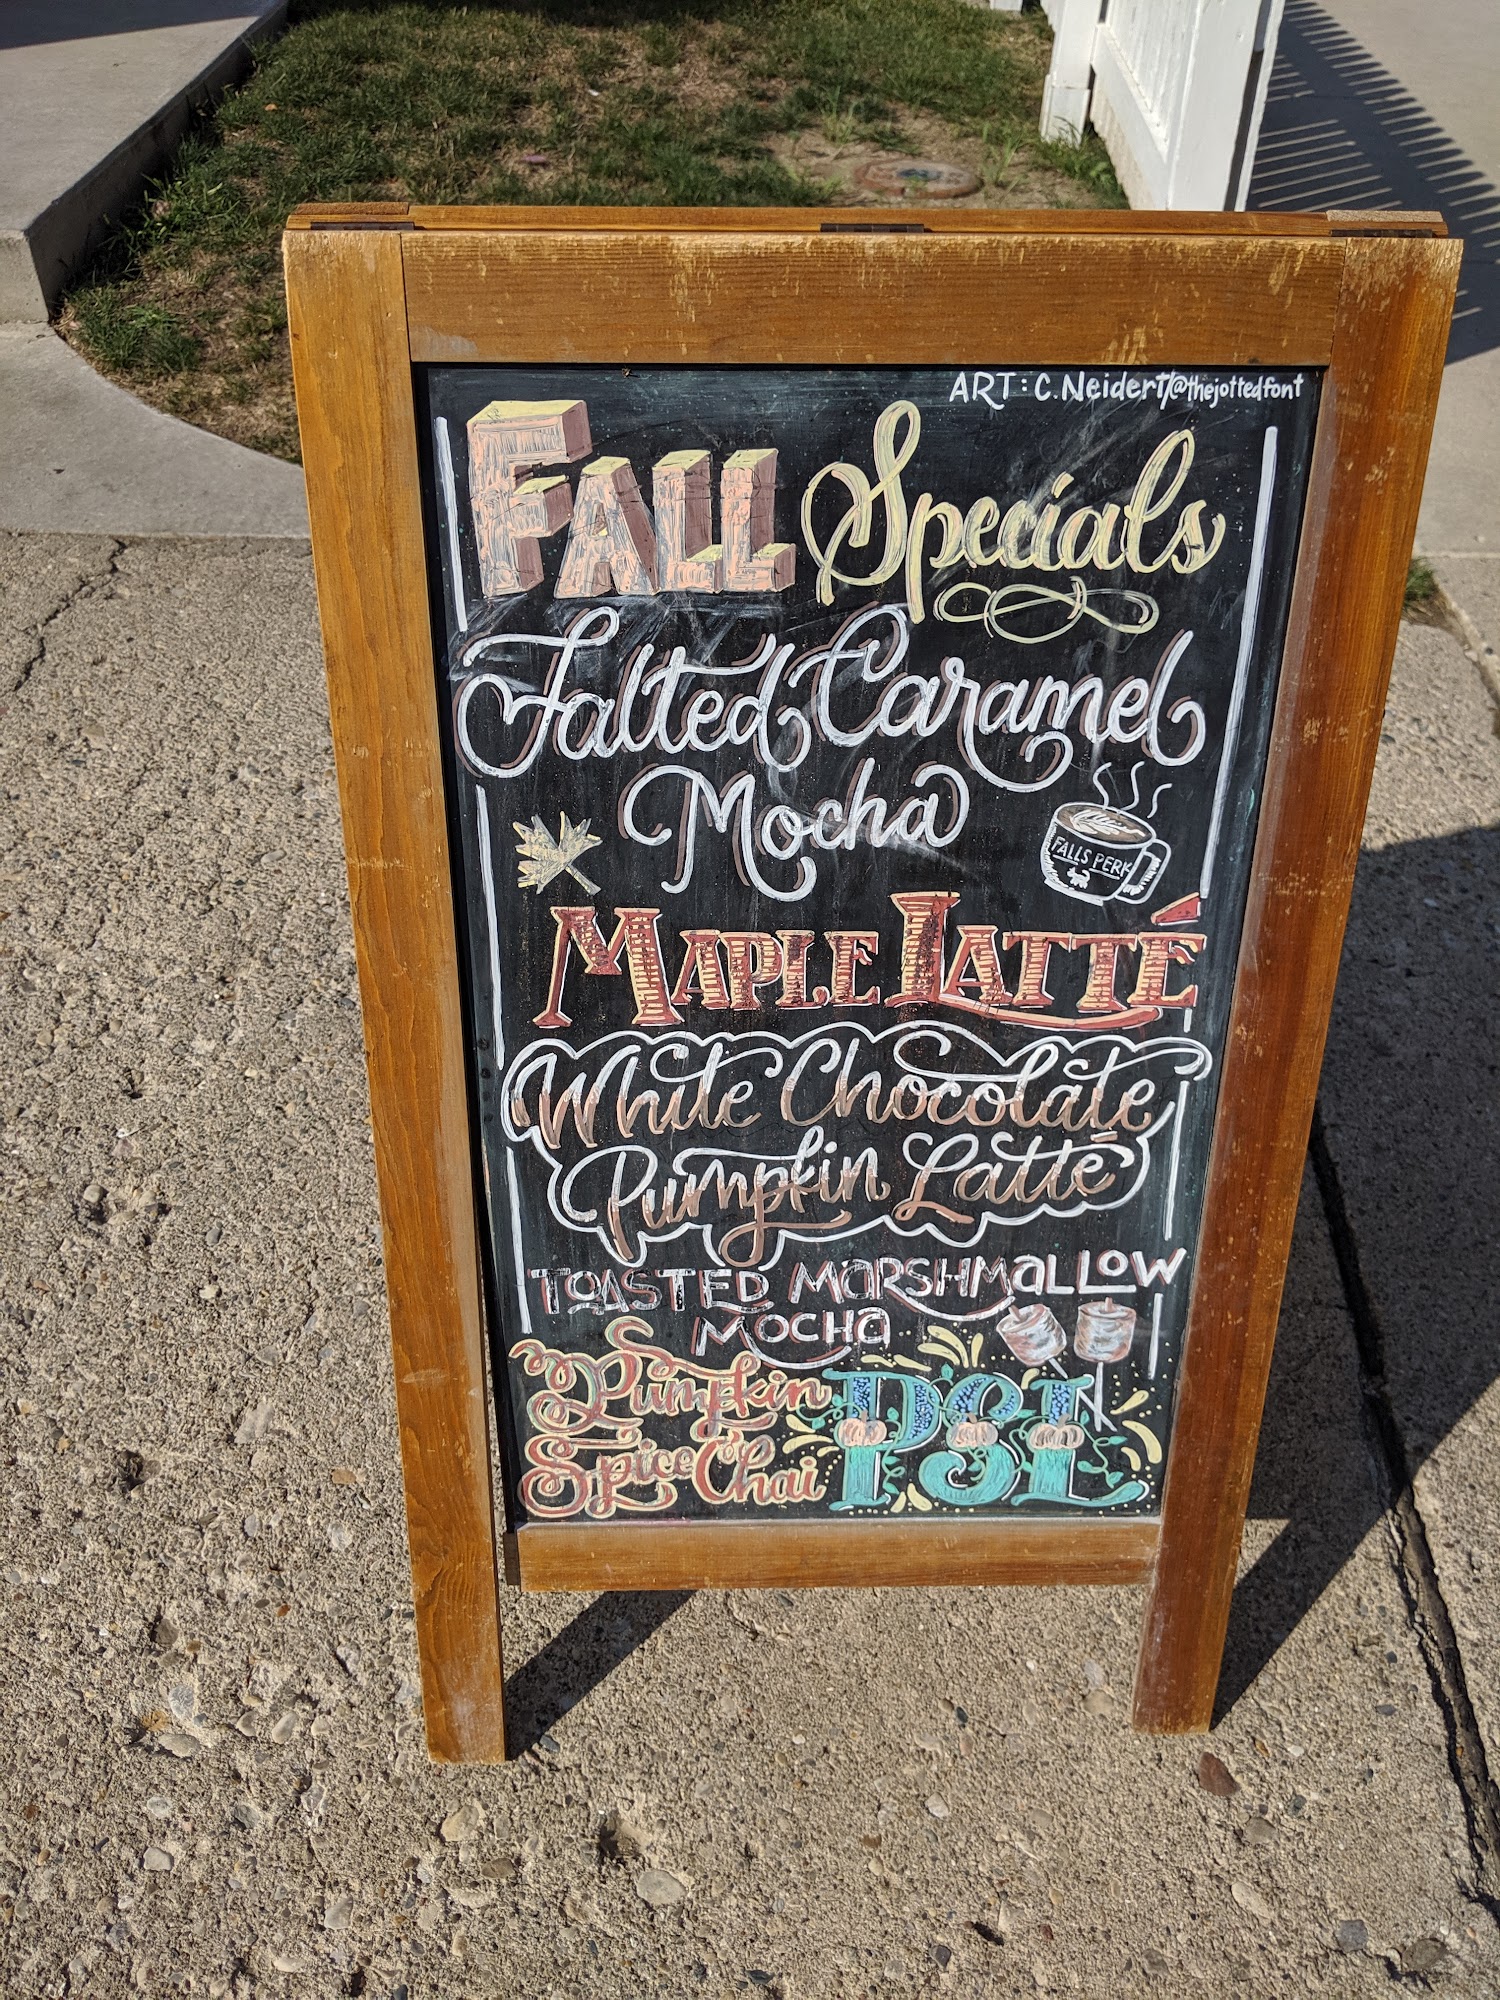 ART: C. Neidert/@thejottedfont
FALL Specials
Salted Caramel
Mocha
FALLS PERK
MAPLE LATTÉ
White Chocolate
Pumpkin Latté
TOASTED MARSHMALLOW
MOCHA
Pumpkin
Spice Chai
PSL